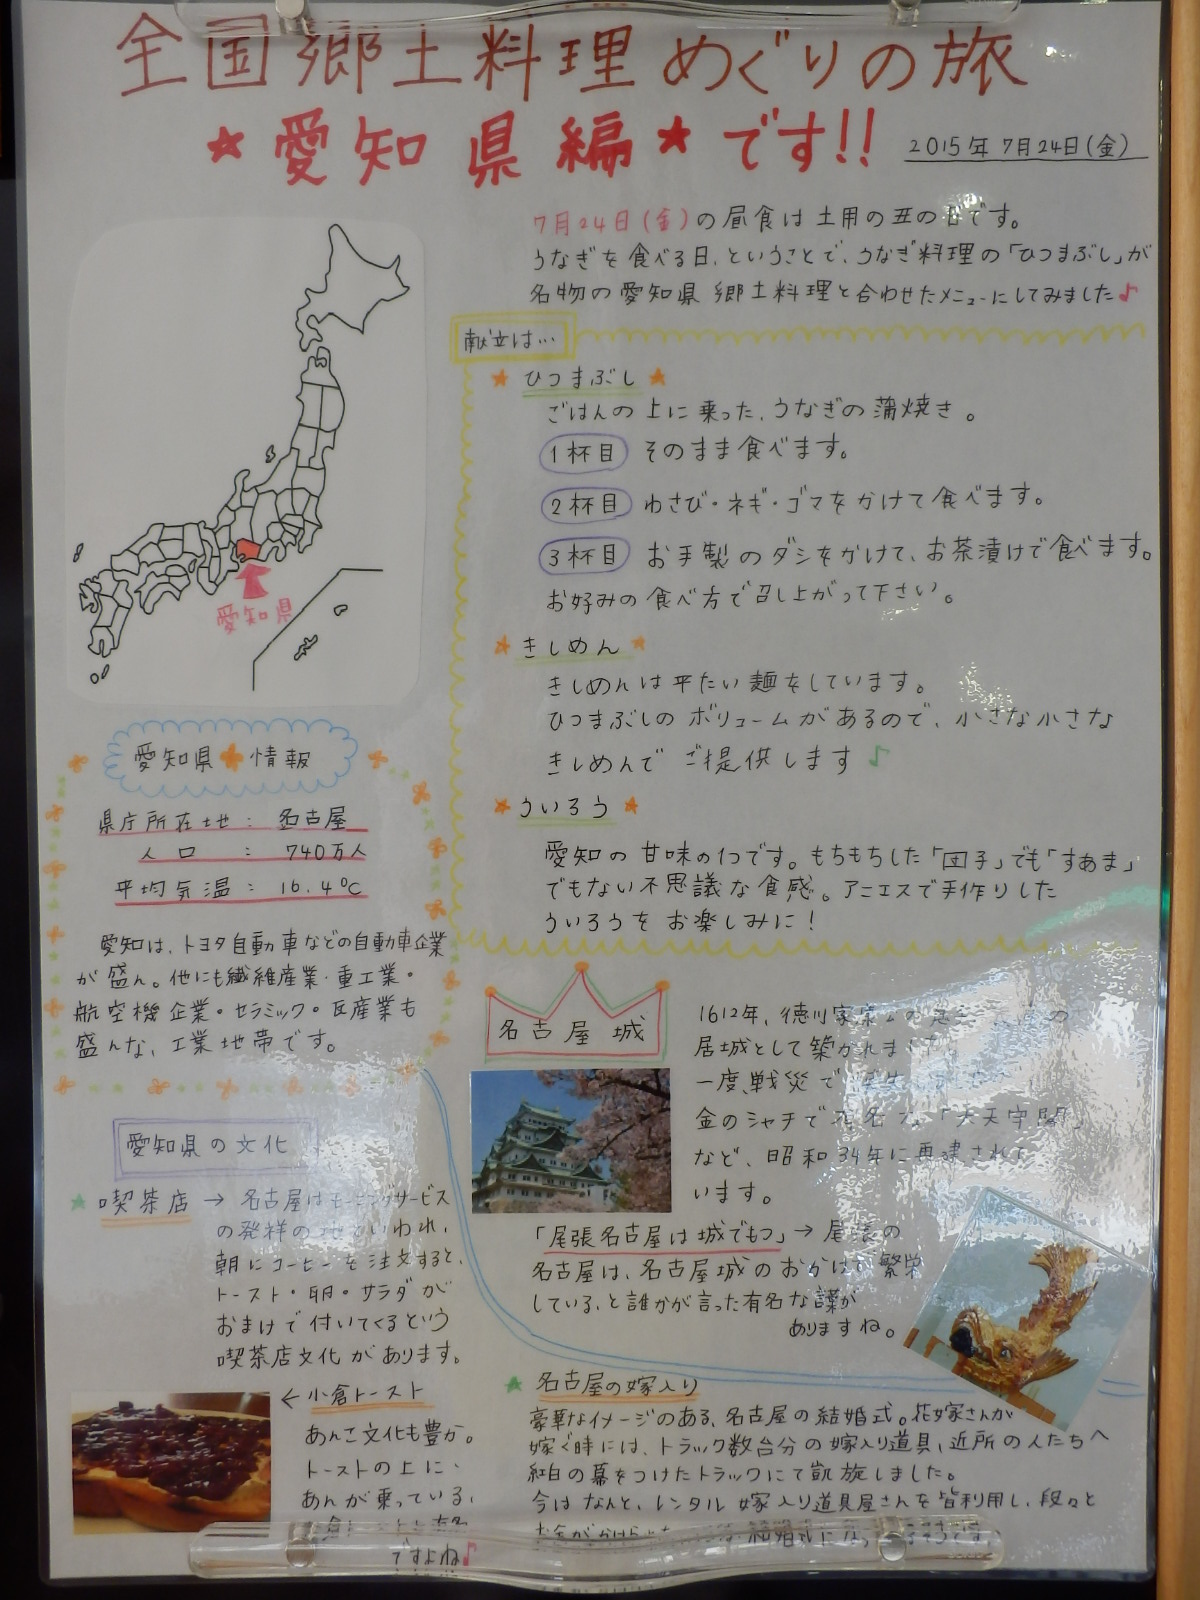 全国郷土料理めぐりの旅
★愛知県編★です!!
2015年7月24日(金)
7月24日(金)の昼食は土用の丑の日です。
うなぎを食べる日、ということで、うなぎ料理の「ひつまぶし」が
名物の愛知県郷土料理と合わせたメニューにしてみました♪
献立は…
★ひつまぶし★
ごはんの上に乗った、うなぎの蒲焼き。
1杯目 そのまま食べます。
2杯目 わさび・ネギ・ゴマをかけて食べます。
3杯目 お手製のダシをかけて、お茶漬けで食べます。
お好みの食べ方で召し上がって下さい。
★きしめん★
きしめんは平たい麺をしています。
ひつまぶしのボリュームがあるので、小さな小さな
きしめんでご提供します♪
★ういろう★
愛知の甘味の1つです。もちもちした「団子」でも「すあま」
でもない不思議な食感。アニエスで手作りした
ういろうをお楽しみに!
愛知県
愛知県★情報
県庁所在地：名古屋
人口：740万人
平均気温：16.4℃
愛知は、トヨタ自動車などの自動車企業
が盛ん。他にも繊維産業・重工業・
航空機企業・セラミック・瓦産業も
盛んな、工業地帯です。
名古屋城
1612年、徳川家康
居城として築かれました
一度、戦災で
金のシャチで有名な「大天守閣」
など、昭和34年に再建されて
います。
「尾張名古屋は城でもつ」→尾張の
名古屋は、名古屋城のおかげで繁栄
している、と誰かが言った有名な諺が
ありますね。
愛知県の文化
★喫茶店→名古屋はモーニングサービス
の発祥の地といわれ、
朝にコーヒーを注文すると、
トースト・卵・サラダが
おまけで付いてくるという
喫茶店文化があります。
←小倉トースト
あんこ文化も豊か。
トーストの上に、
あんが乗っている、
ですよね♪
★名古屋の嫁入り
豪華なイメージのある、名古屋の結婚式。花嫁さんが
嫁ぐ時には、トラック数台分の嫁入り道具、近所の人たちへ
紅白の幕をつけたトラックにて凱旋しました。
今はなんと、レンタル嫁入り道具屋さんを皆利用し、段々と
お金がかけられ 結婚式に